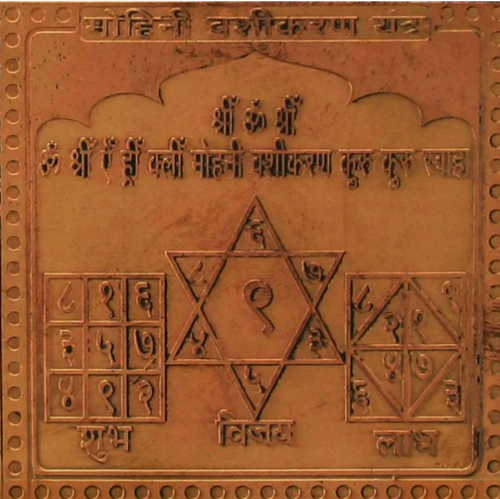 मोहिनी वशीकरण यंत्र
श्रीँ ॐ श्रीँ
ॐ श्रीँ ऐँ ह्रीँ क्लीँ मोहनी वशीकरण कुरु कुरु स्वाहा
६
८ ७
१
४ ३
५
८ १ ६
३ ५ ७
४ ९ २
८ १ ९
२ १
४ ७
६ ३
शुभ विजय लाभ